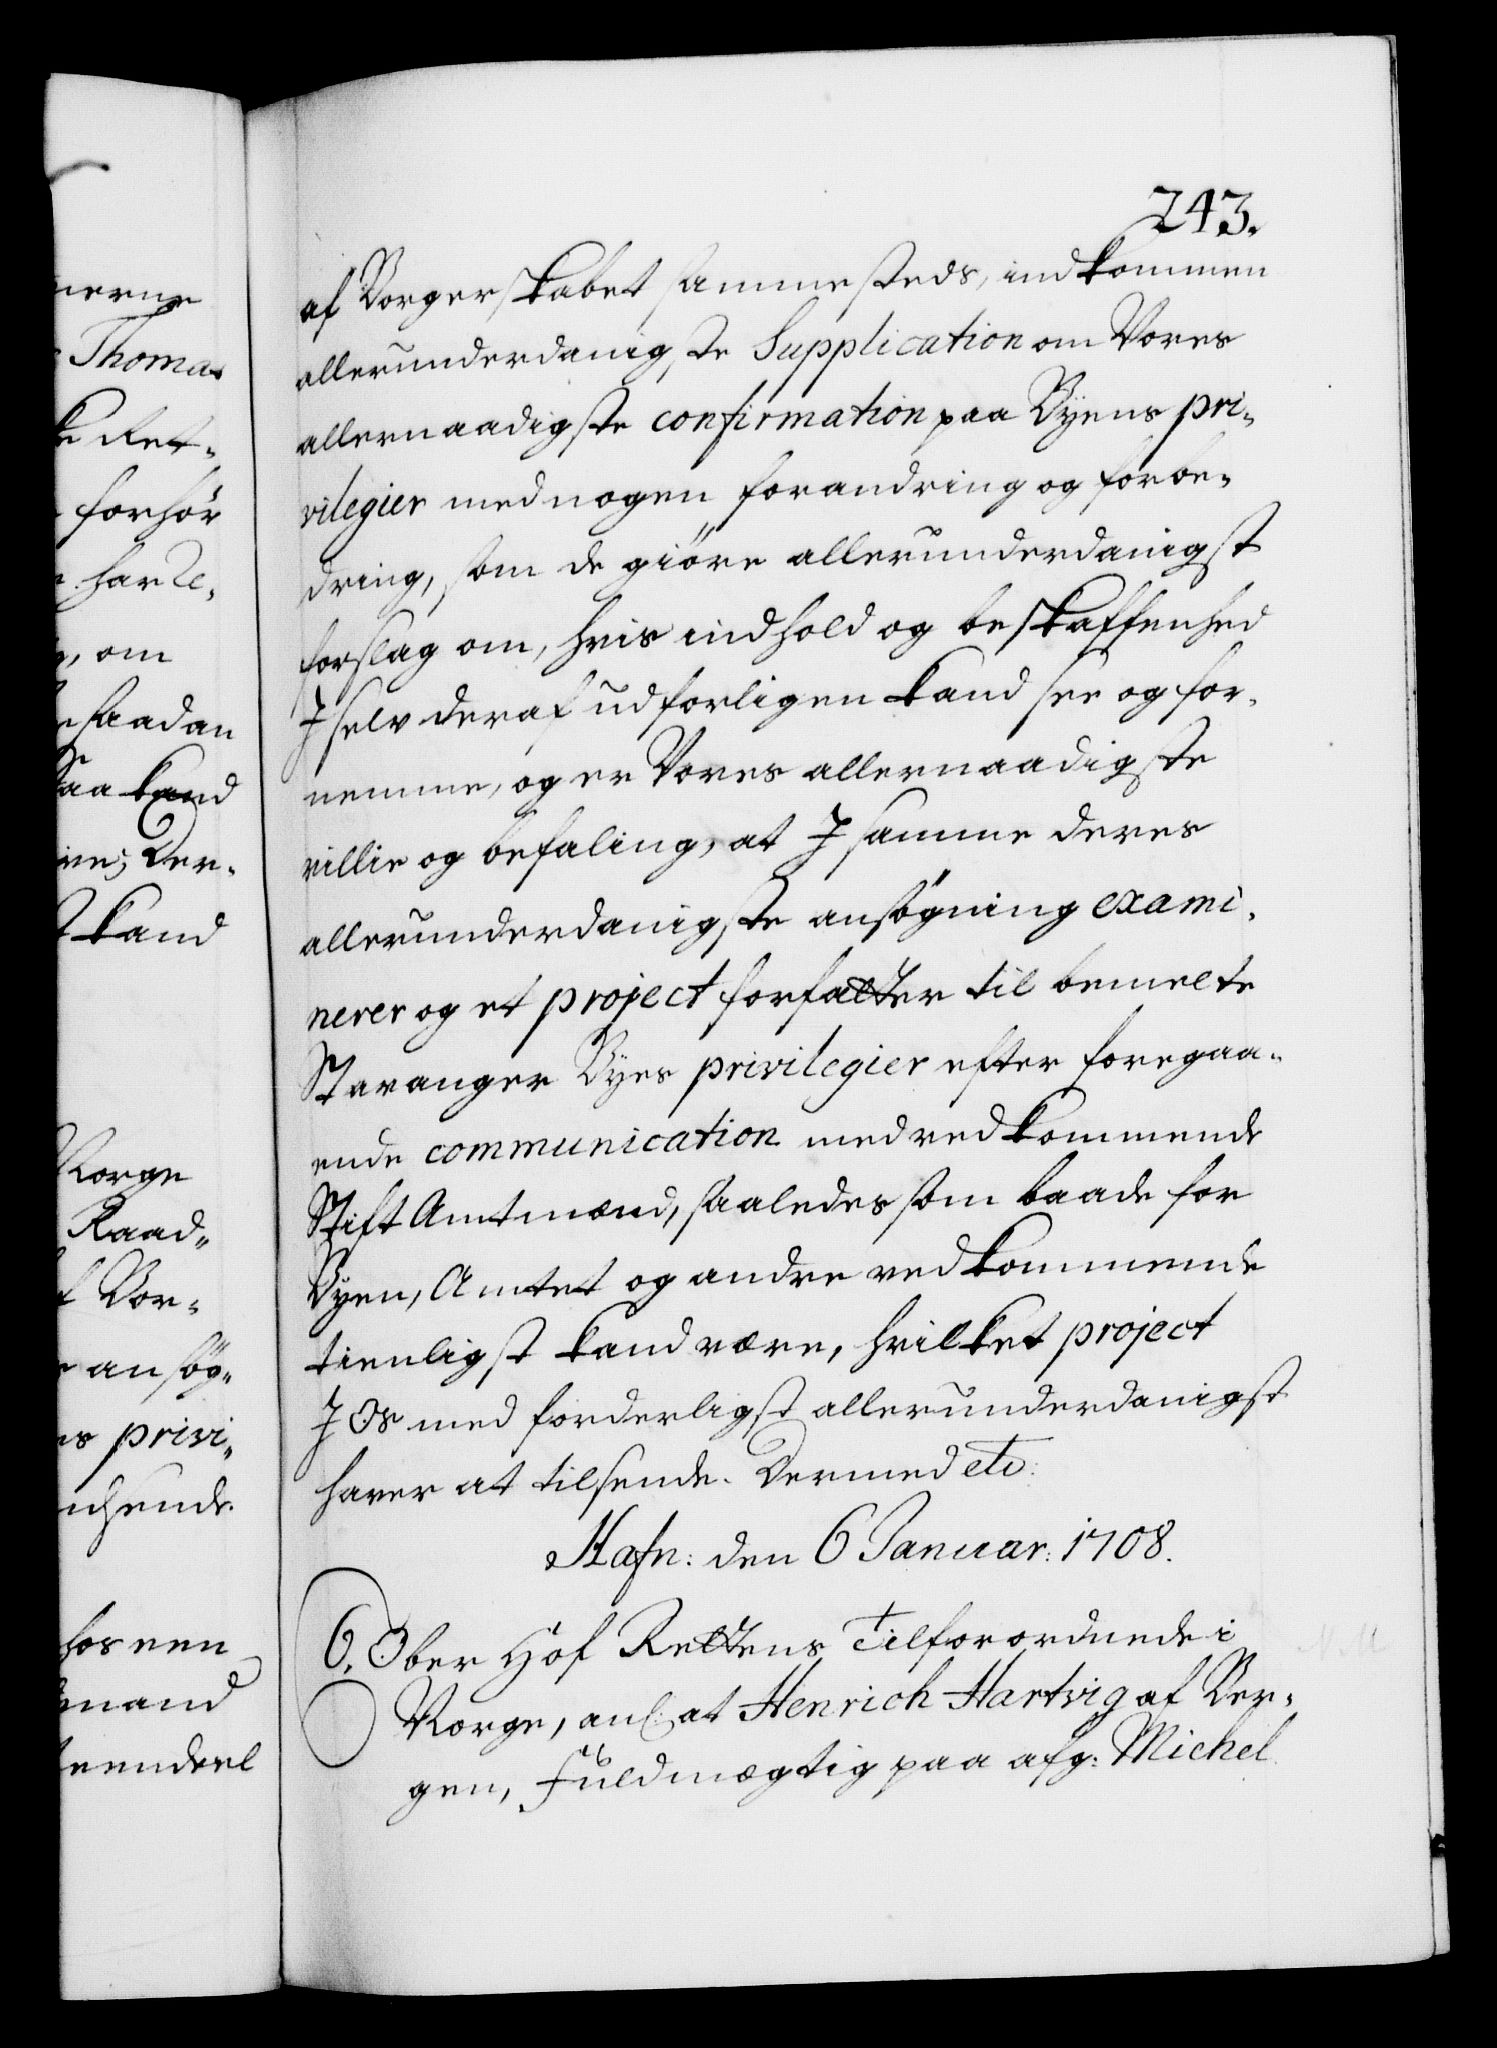 243.
af Borgerskabet sammesteds, indkommen
allerunderdanigste Supplication om Vores
allernaadigste confirmation paa Byens pri-
vilegier med nogen forandring og forbe-
dring, som de giöre allerunderdanigst
forslag om, hvis indhold og beskaffenhed
I selv deraf udförligen kand see og for-
nemme, og er Vores allernaadigste
villie og befaling, at I samme deres
allerunderdanigste ansögning exami-
nerer og et project forfatter til bemelte
Stavanger Byes privilegier efter foregaa-
ende communication med vedkommende
Stift Amtmænd, saaledes som baade for
Byen, Amtet og andre vedkommende
tienligst kand være, hvilket project
I Os med forderligst allerunderdanigst
haver at tilsende. Dermed etc:
Hafn: den 6 Januar: 1708.
6. Ober Hof Rettens Tilforordnede i
Norge, anl: at Henrich Hartvig af Ber-
gen, Fuldmægtig paa afg: Michel
nerne
Thomas
Ret-
forhör
har
om
saadan
kand
Der-
kand
Norge
Raad-
Bor-
ansög-
privi-
hos een
mand
eendeel